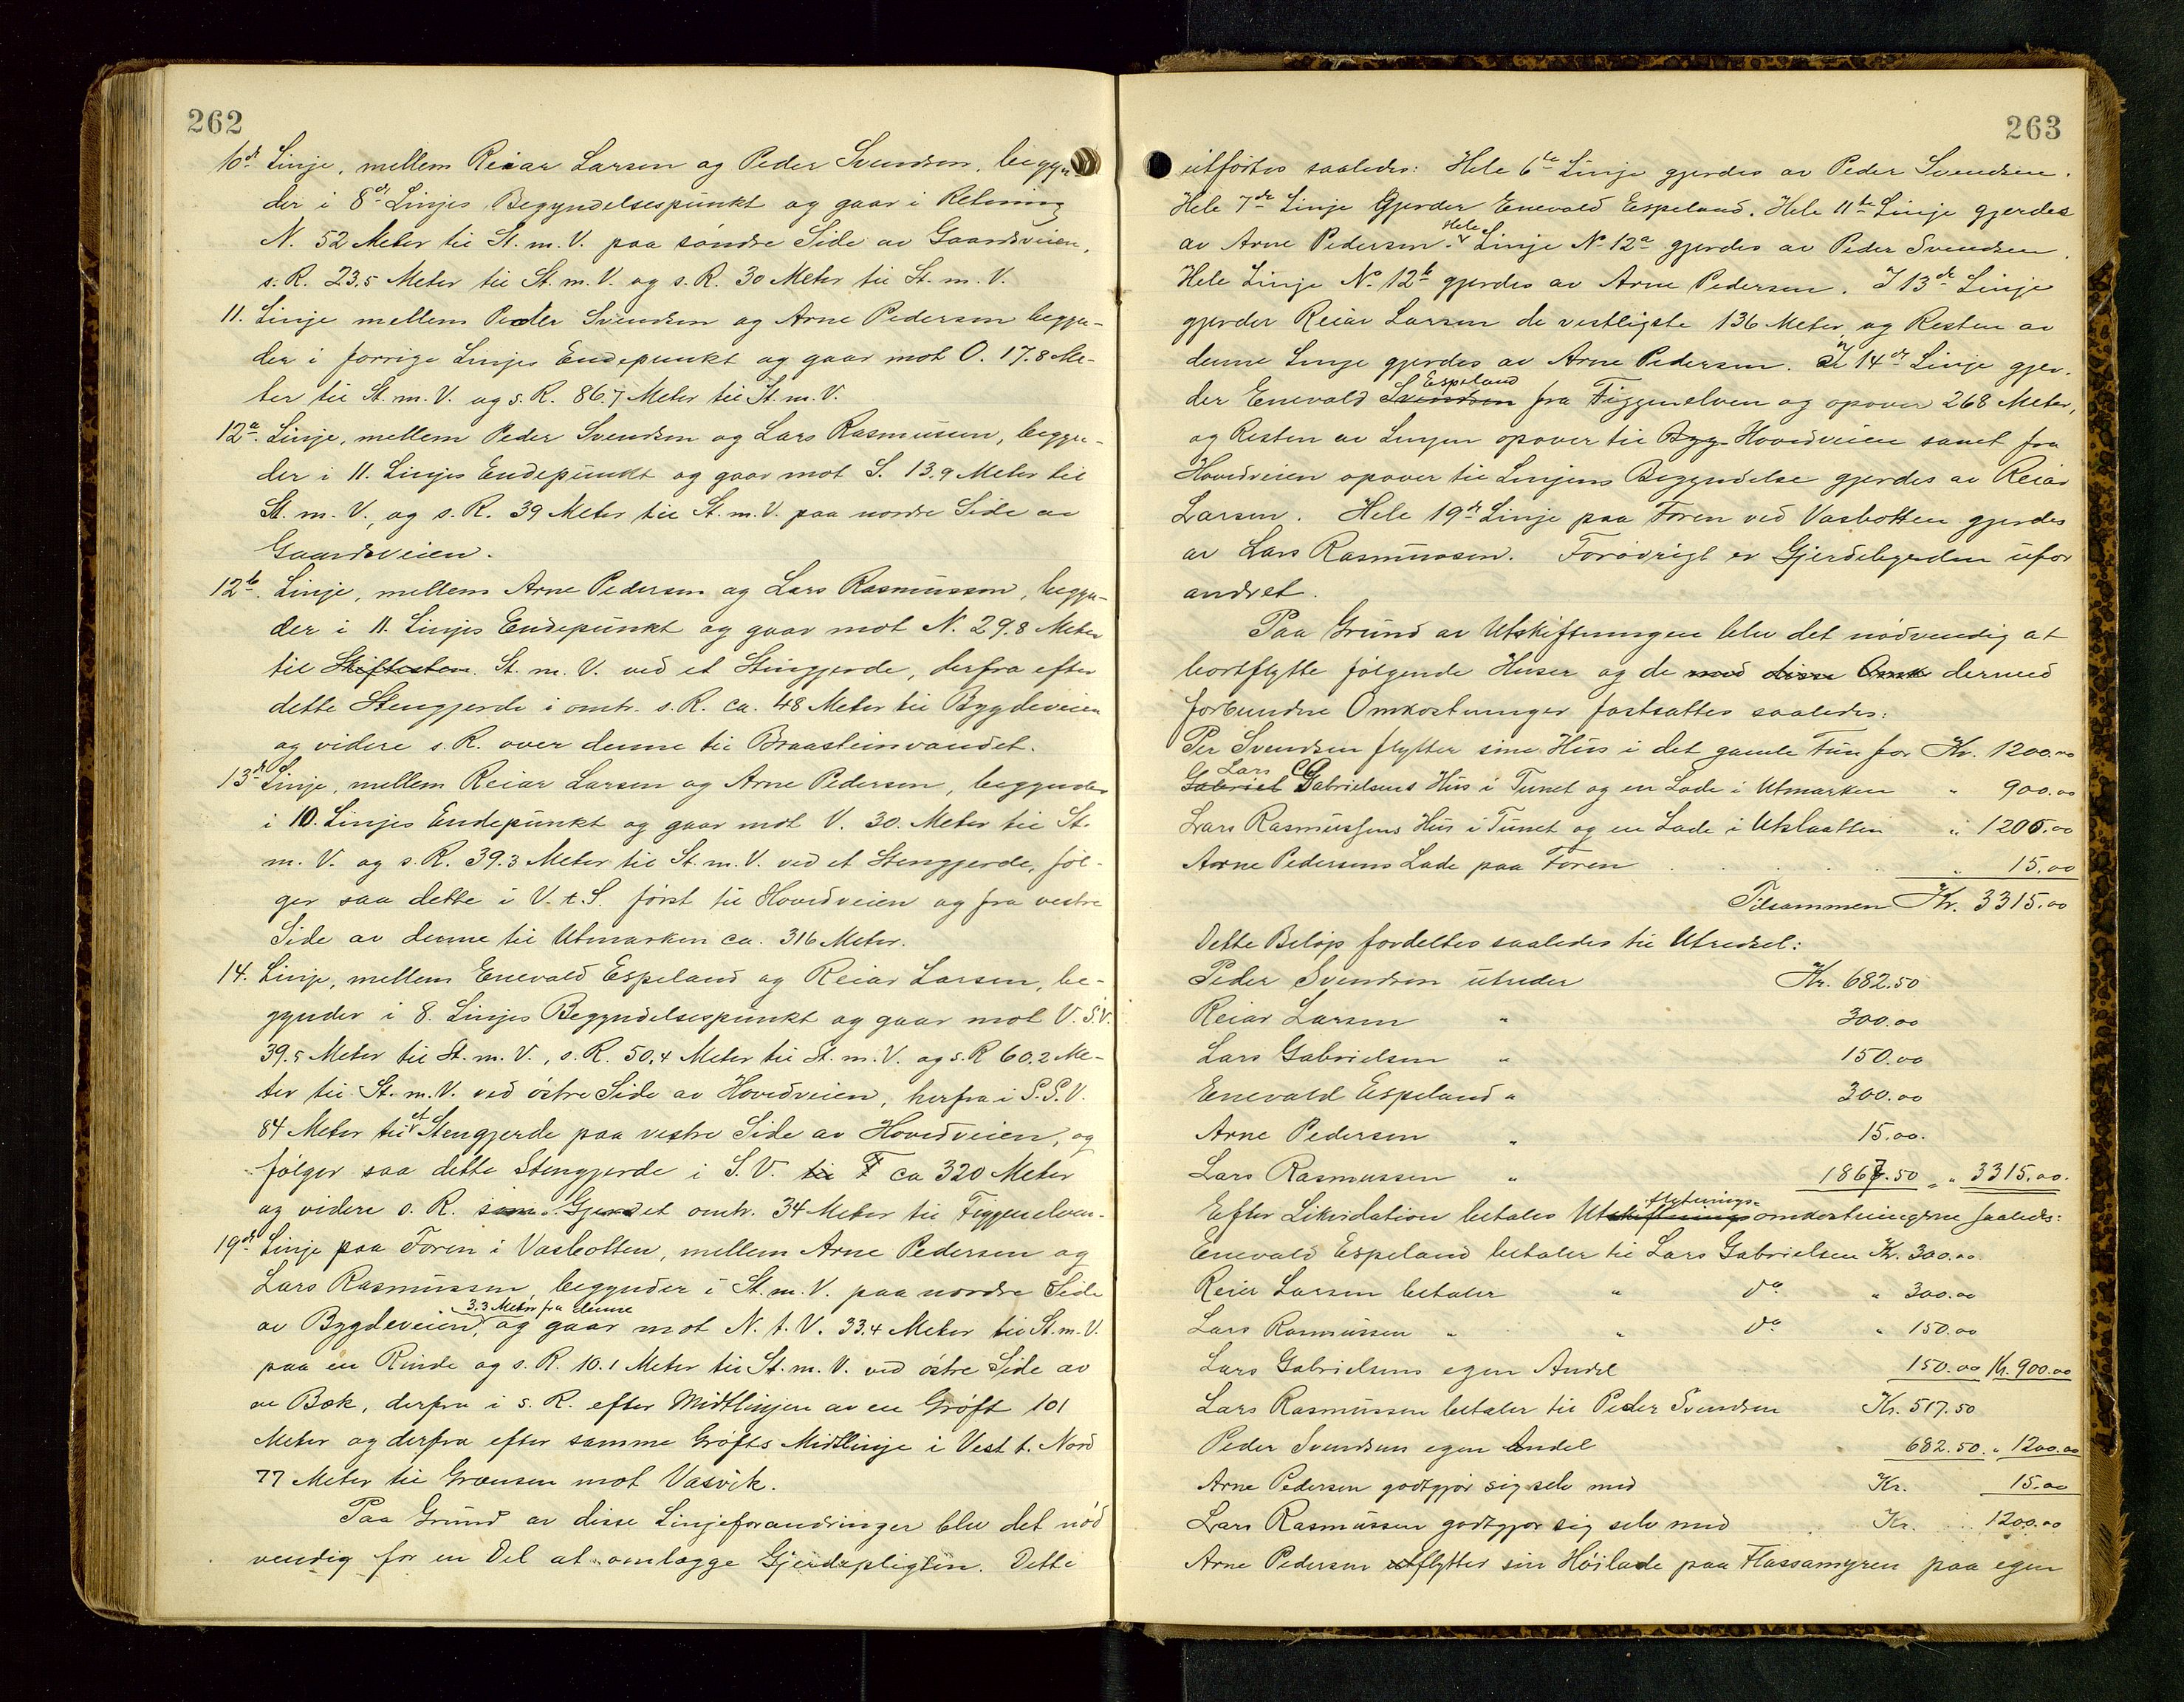 262
10de Linje, mellem Reiar Larsen og Peder Svendsen, begyn-
der i 8de Linjes Begyndelsespunkt og gaar i Retning
N. 52 Meter til St. m. V. paa søndre Side av Gaardsveien,
s. R. 23.5 Meter til St. m. V. og s. R. 30 Meter til St. m. V.
11. Linje mellem Peder Svendsen og Arne Pedersen begyn-
der i forrige Linjes Endepunkt og gaar mot O. 17.8 Me-
ter til St. m. V. og s. R. 86.7 Meter til St. m. V.
12a. Linje, mellem Peder Svendsen og Lars Rasmussen, begyn-
der i 11. Linjes Endepunkt og gaar mot S. 13.9 Meter til
St. m. V., og s. R. 39 Meter til St. m. V. paa nordre Side av
Gaardsveien.
12b. Linje, mellem Arne Pedersen og Lars Rasmussen, begyn-
der i 11. Linjes Endepunkt og gaar mot N. 29.8 Meter
til Skiftesten. St. m. V. ved et Stengjerde, derfra efter
dette Stengjerde i omtr. s. R. ca. 48 Meter til Bygdeveien
og videre s. R. over denne til Braasteinvandet.
13de Linje, mellem Reiar Larsen og Arne Pedersen, begynder
i 10. Linjes Endepunkt og gaar mot V. 30. Meter til St.
m. V. og s. R. 39.3 Meter til St. m. V. ved et Stengjerde, føl-
ger saa dette i V. t. S. først til Hovedveien og fra vestre
Side av denne til Utmarken ca. 316 Meter.
14. Linje, mellem Enevald Espeland og Reiar Larsen, be-
gynder i 8. Linjes Begyndelsespunkt og gaar mot V. S. V.
39.5 Meter til St. m. V., s. R. 50.4 Meter til St. m. V. og s. R 60.2 Me-
ter til St. m. V. ved østre Side av Hovedveien, herfra i S. S. V.
84 Meter til et Stengjerde paa vestre Side av Hovedveien, og
følger saa dette Stengjerde i S. V. til F ca 320 Meter
og videre s. R. som Gjerdet omtr. 34 Meter til Figgenelven.
19de Linje paa Foren i Vasbotten, mellem Arne Pedersen og
Lars Rasmussen, begynder i St. m. V. paa nordre Side
av Bygdeveien, 3.3 Meter fra denne og gaar mot N. t. V. 33.4 Meter til St. m. V.
paa en Rinde og s. R. 10.1 Meter til St. m. V. ved østre Side av
en Bæk, derfra i s. R. efter Midtlinjen av en Grøft 101
Meter og derfra efter samme Grøfts Midtlinje i Vest t. Nord
77 Meter til Grænsen mot Vasvik.
Paa Grund av disse Linjeforandringer blev det nød
vendig for en Del at omlægge Gjerdepligten. Dette
263
utførtes saaledes: Hele 6te Linje gjerdes av Peder Svendsen.
Hele 7de Linje Gjerder Enevald Espeland. Hele 11te Linje gjerdes
av Arne Pedersen. Hele Linje No 12a gjerdes av Peder Svendsen.
Hele Linje No 12b gjerdes av Arne Pedersen. I 13de Linje
gjerder Reiar Larsen de vestligste 136 Meter og Resten av
denne Linje gjerdes av Arne Pedersen. I 14de Linje gjer-
der Enevald Svendsen Espeland fra Figgenelven og opover 268 Meter,
og Resten av Linjen opover til Byg Hovedveien samt fra
Hovedveien opover til Linjens Begyndelse gjerdes av Reiar
Larsen. Hele 19de Linje paa Foren ved Vasbotten gjerdes
av Lars Rasmussen. Forøvrigt er Gjerdebyrden ufor
andret.
Paa Grund av Utskiftningen blev det nødvendig at
bortflytte følgende Huser og de med disse Omk dermed
forbundne Omkostninger fastsattes saaledes:
Per Svendsen flytter sine Hus i det gamle Tun for Kr. 1200.00
Gabriel Lars Gabrielsens Hus i Tunet og en Lade i Utmarken " 900.00
Lars Rasmussens Hus i Tunet og en Lade i Utslaatten " 1200.00
Arne Pedersens Lade paa Foren . . . . . " 15.00
Tilsammen Kr. 3315.00
Dette Beløp fordeltes saaledes til Utredsel:
Peder Svendsen utreder Kr. 682.50
Reiar Larsen " 300.00
Lars Gabrielsen " 150.00
Enevald Espeland " 300.00
Arne Pedersen " 15.00.
Lars Rasmussen " 1867.50 " 3315.00.
Efter Likvidation betales Utskiftnings flytnings-omkostningerne saaledes:
Enevald Espeland betaler til Lars Gabrielsen Kr. 300.00
Reiar Larsen betaler " do " 300.00
Lars Rasmussen " " do " 150.00
Lars Gabrielsens egen Andel 150.00 Kr. 900.00
Lars Rasmussen betaler til Peder Svendsen Kr. 517.50
Peder Svendsens egen Andel 682.50 " 1200.00
Arne Pedersen godtgjør sig selv med Kr. 15.00
Lars Rasmussen godtgjør sig selv med Kr. 1200.00
Arne Pedersen utflytter sin Høilade paa Flassamyren paa egen